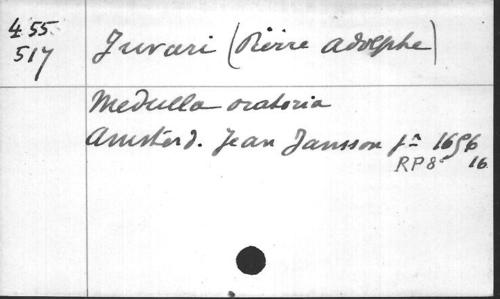 455
517
Juvari (Pierre adolphe)
Medulla oratoria
Amsterd. Jean Jansson jn 1656
RP8° 16